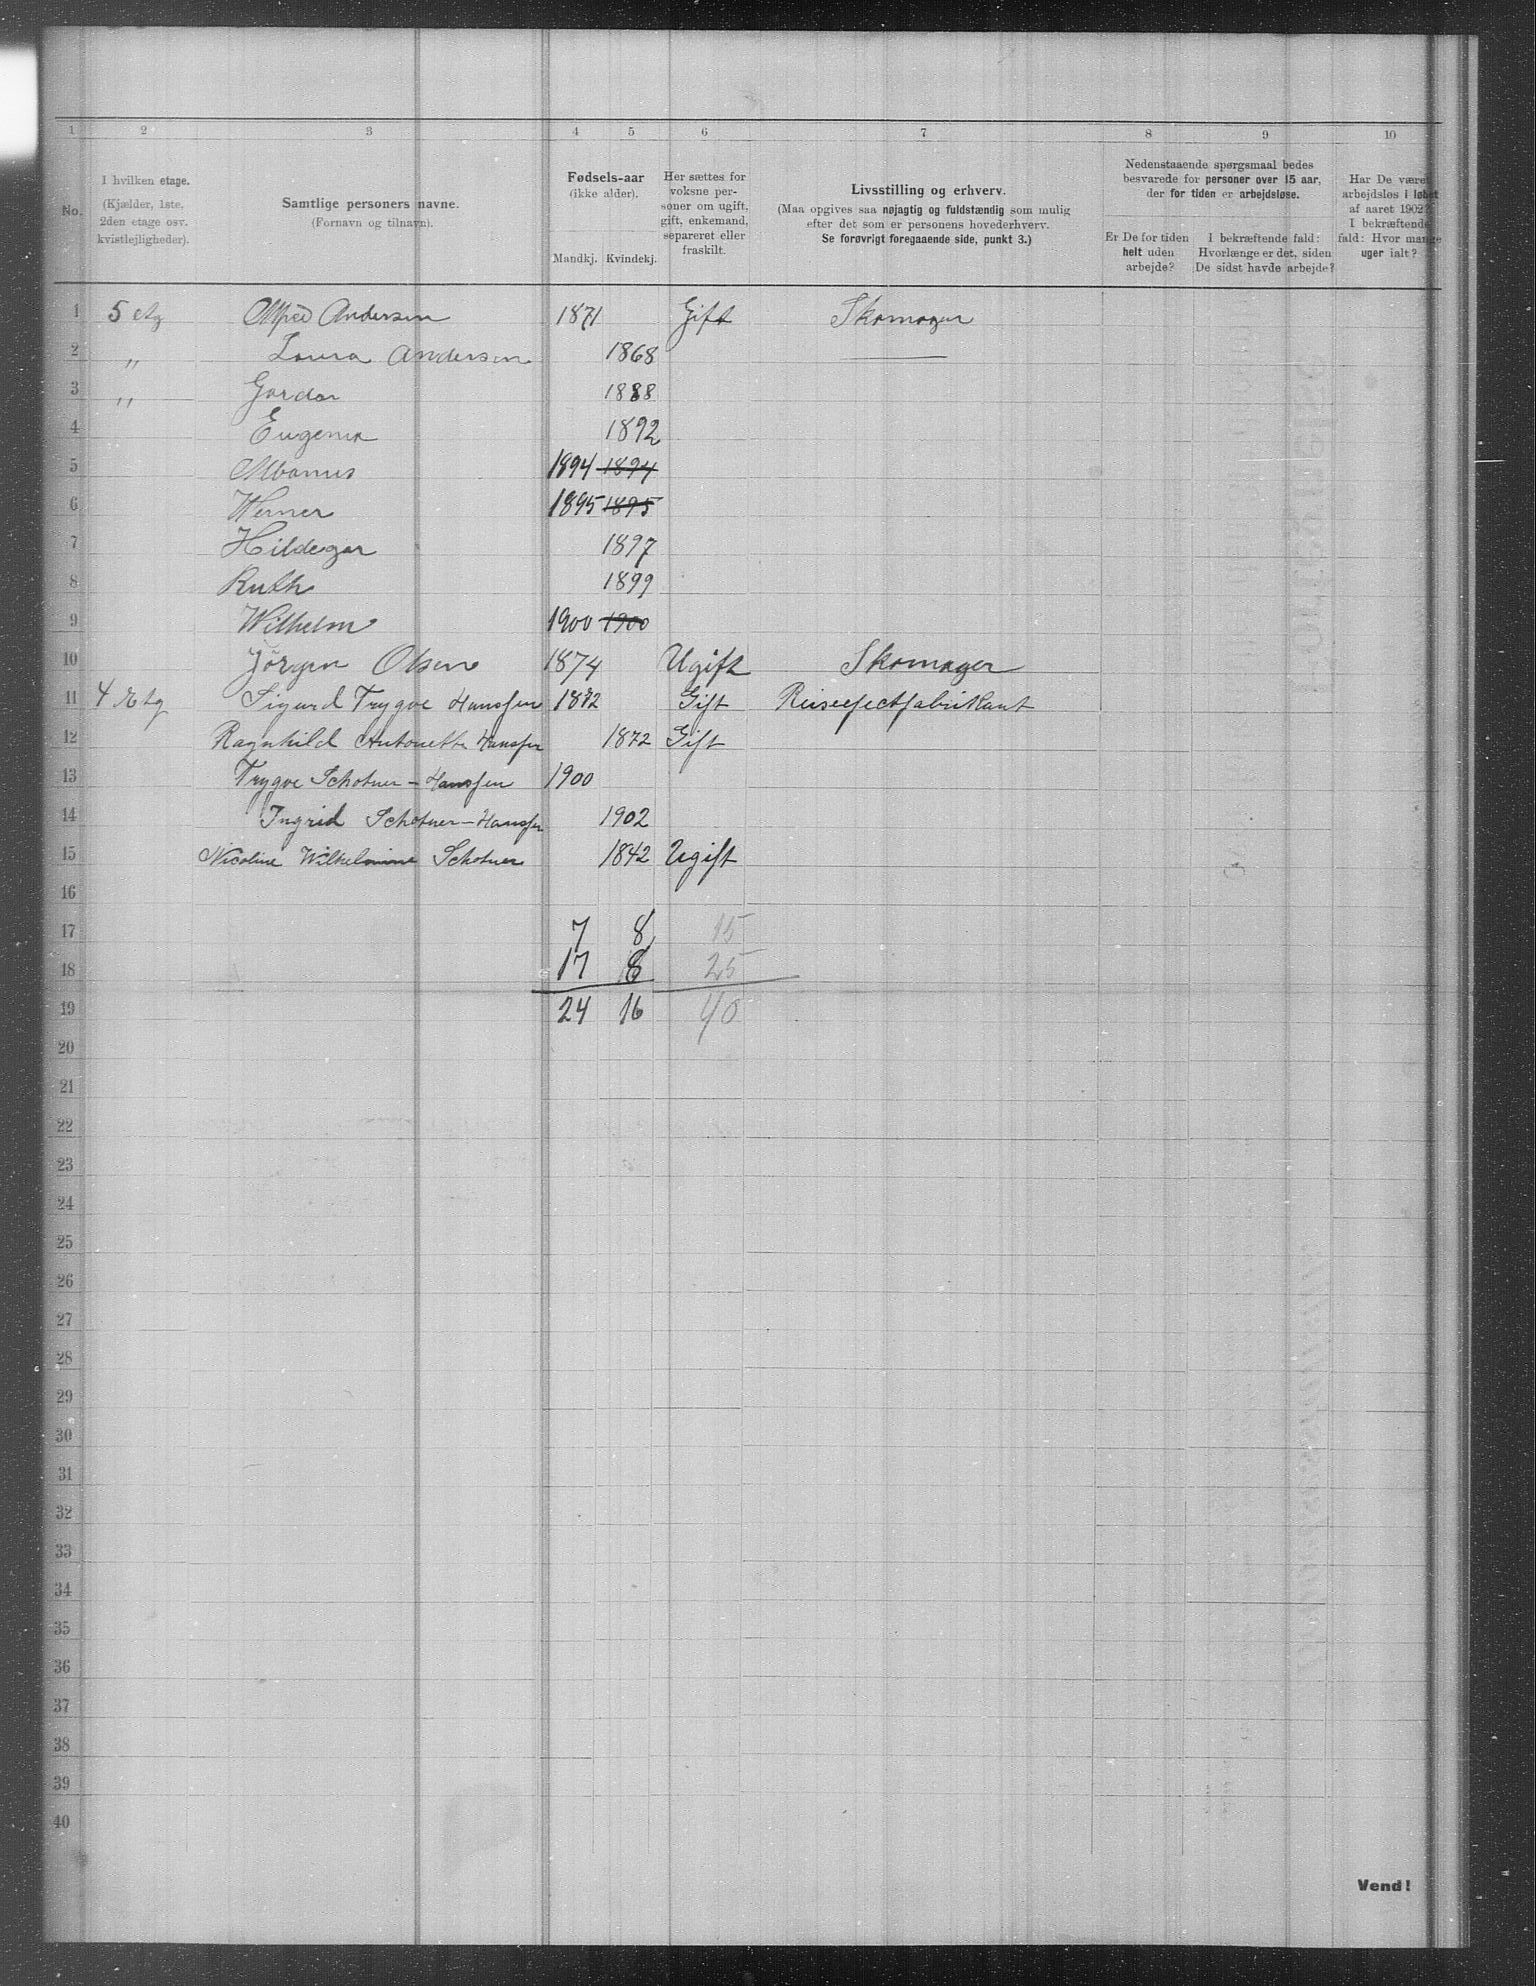 1 2 3 4 5 6 7 8 9 10
No.
I hvilken etage.
(Kjælder, 1ste,
2den etage osv.
kvistlejligheder).
Samtlige personers navne.
(Fornavn og tilnavn).
Fødsels-aar
(ikke alder).
Mandkj. Kvindekj.
Her sættes for
voksne per-
soner om ugift,
gift, enkemand,
separeret eller
fraskilt.
Livsstilling og erhverv.
(Maa opgives saa nøjagtig og fuldstændig som mulig
efter det som er personens hovederhverv.
Se forøvrigt foregaaende side, punkt 3.)
Nedenstaaende spørgsmaal bedes
besvarede for personer over 15 aar,
der for tiden er arbejdsløse.
Er De for tiden
helt uden
arbejde?
I bekræftende fald:
Hvorlænge er det, siden
De sidst havde arbejde?
Har De været
arbejdsløs i løbet
af aaret 1902?
I bekræftende
fald: Hvor mange
uger ialt?
1 5 etg Alfred Andersen 1871 Gift Skomager
2 " Laura Andersen 1868
3 " Gerda 1888
4 Eugenia 1892
5 Albanus 1894 1894
6 Werner 1895 1895
7 Hildegar 1897
8 Ruth 1899
9 Wilhelm 1900 1900
10 Jörgen Olsen 1874 Ugift Skomager
11 4 Etg Sigurd Trygve Hanssen 1872 Gift Reiseefectfabrikant
12 Ragnhild Antonette Hanssen 1872 Gift
13 Trygve Schotner-Hanssen 1900
14 Ingrid Schotner-Hanssen 1902
15 Nicoline Wilhelmine Schotner 1842 Ugift
16
17 7 8 15
18 17 8 25
19 24 16 40
20
21
22
23
24
25
26
27
28
29
30
31
32
33
34
35
36
37
38
39
40
Vend!